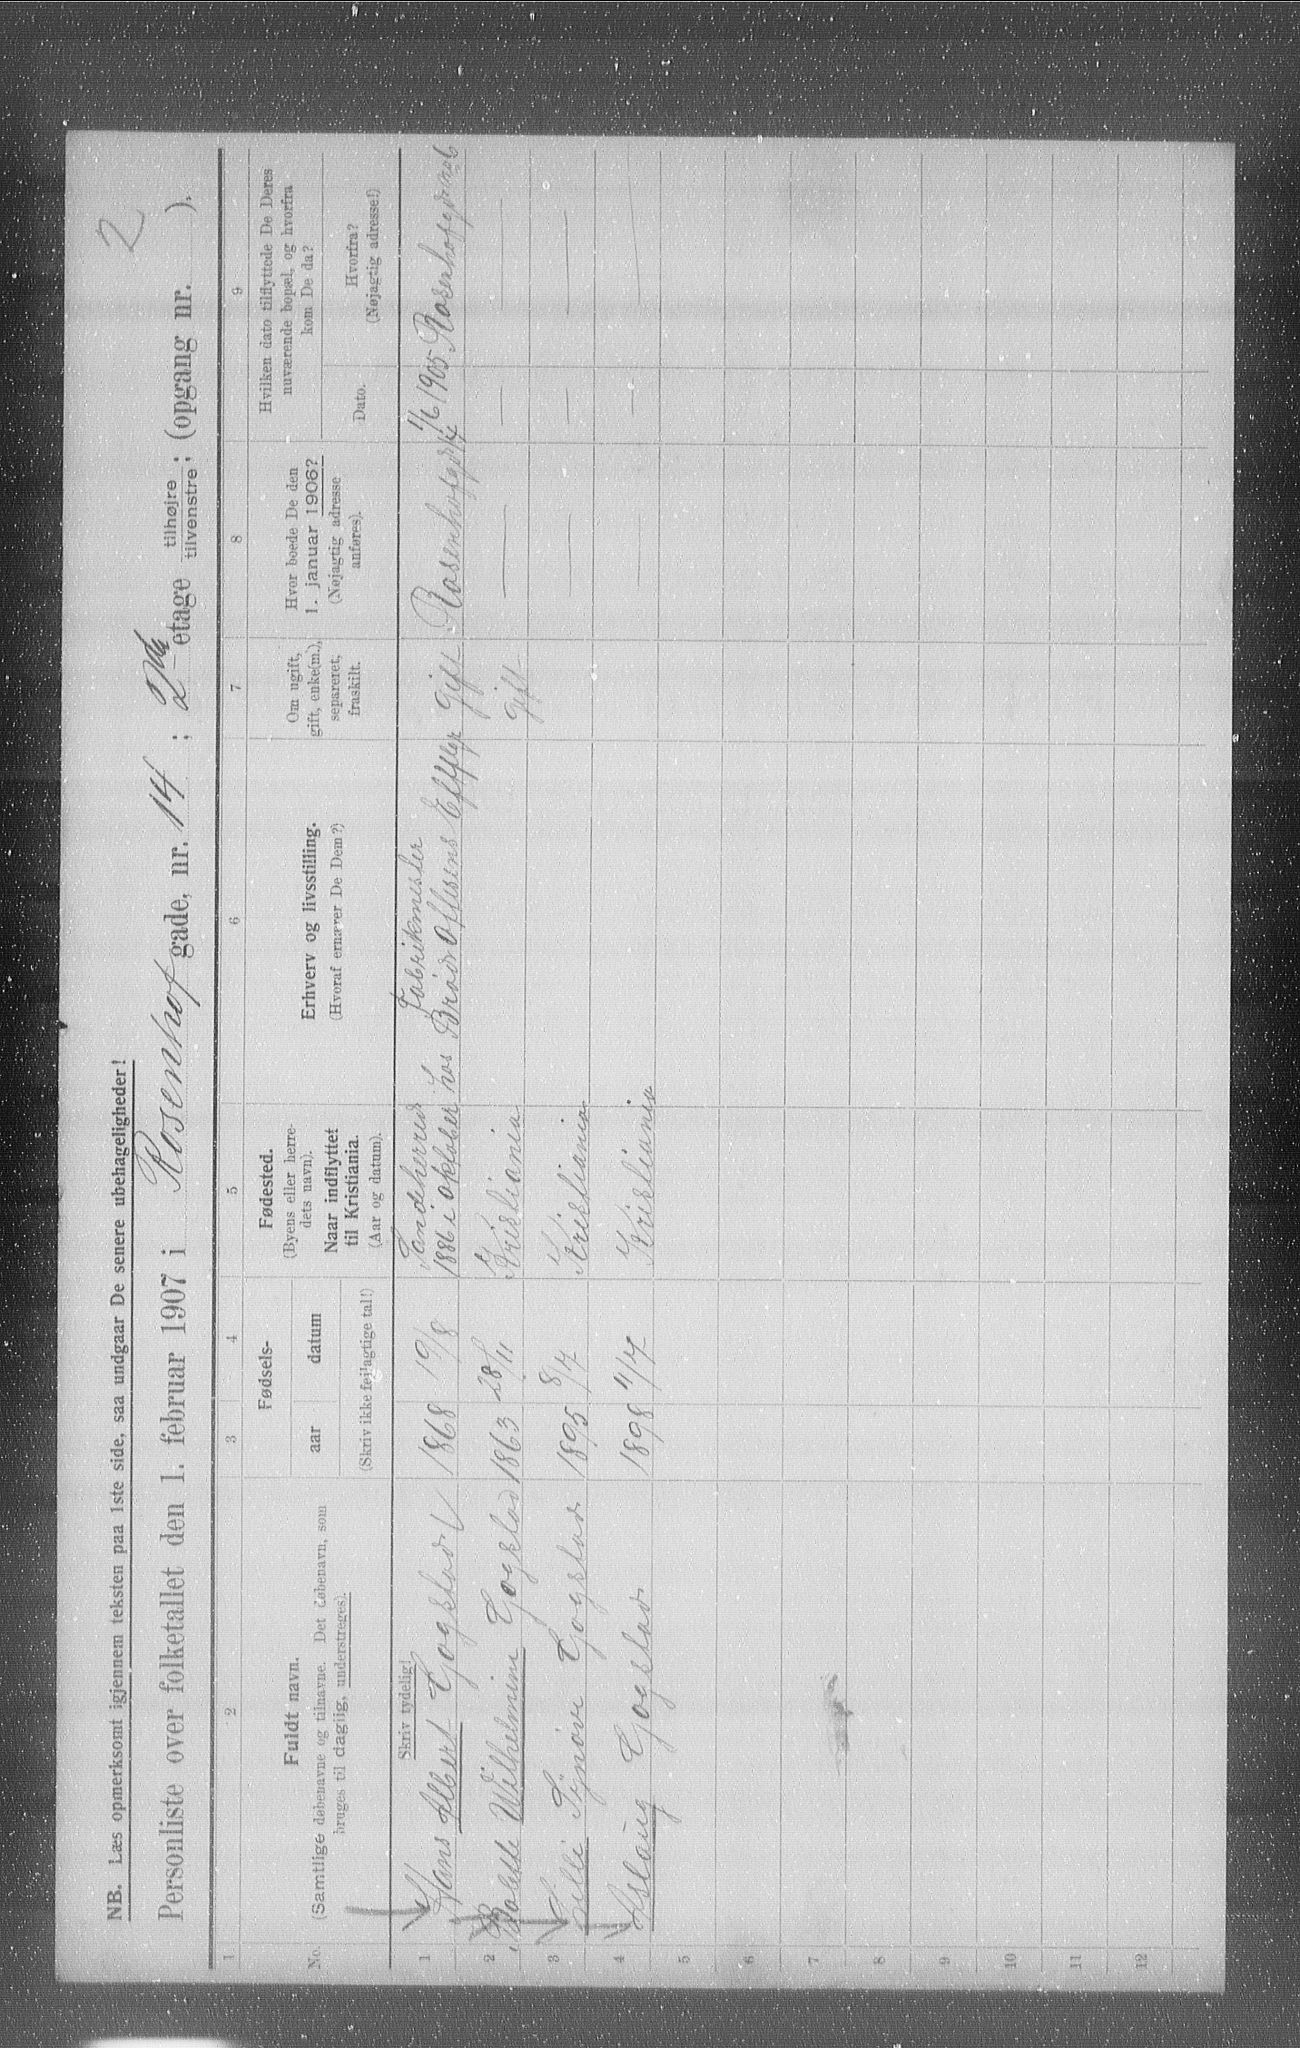 2
NB. Læs opmerksomt igjennem teksten paa 1ste side, saa undgaar De senere ubehageligheder!
Personliste over folketallet den 1. februar 1907 i Rosenhof gade, nr. 14 ; 2den etage tilhøjre / tilvenstre ; (opgang nr. ).
1 2 3 4 5 6 7 8 9
No.
Fuldt navn.
(Samtlige døbenavne og tilnavne. Det døbenavn, som
bruges til daglig, understreges).
Fødsels-
aar datum
(Skriv ikke fejlagtige tal!)
Fødested.
(Byens eller herre-
dets navn).
Naar indflyttet
til Kristiania.
(Aar og datum).
Erhverv og livsstilling.
(Hvoraf ernærer De Dem?)
Om ugift,
gift, enke(m.),
separeret,
fraskilt.
Hvor boede De den
1. januar 1906?
(Nøjagtig adresse
anføres).
Hvilken dato tilflyttede De Deres
nuværende bopæl, og hvorfra
kom De da?
Dato.
Hvorfra?
(Nøjagtig adresse!)
Skriv tydelig!
1 Hans Albert Gogstad 1868 19/8 Sandeherred 1886 i oktober Fabrikmester hos Brødr Ollsens Efftflgr Gift Rosenhofgd 14 1/6 1905 Rosenhofgd no 6
2 Bolette Wilhelmine Gogstad 1863 28/11 Kristiania gift — — —
3 Lilli Synøve Gogstad 1895 8/7 Kristiania — — —
4 Aslaug Gogstad 1898 1/7 Kristiania — — —
5
6
7
8
9
10
11
12